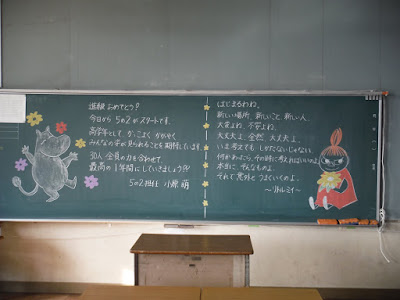 進級おめでとう!
今日から5の2がスタートです。
高学年として、かっこよくかがやく
みんなの姿が見られることを期待しています。
30人全員の力を合わせて、
最高の1年間にしていきましょう!!
5の2担任 小原 萌
はじまるわね。
新しい場所、新しいこと、新しい人。
大変よね、不安よね。
大丈夫よ、全然、大丈夫よ。
いま考えても、しかたないじゃない。
何かあったら、その時に考えればいいのよ。
本当に、そんなものよ。
それで意外とうまくいくのよ。
〜リトルミイ〜